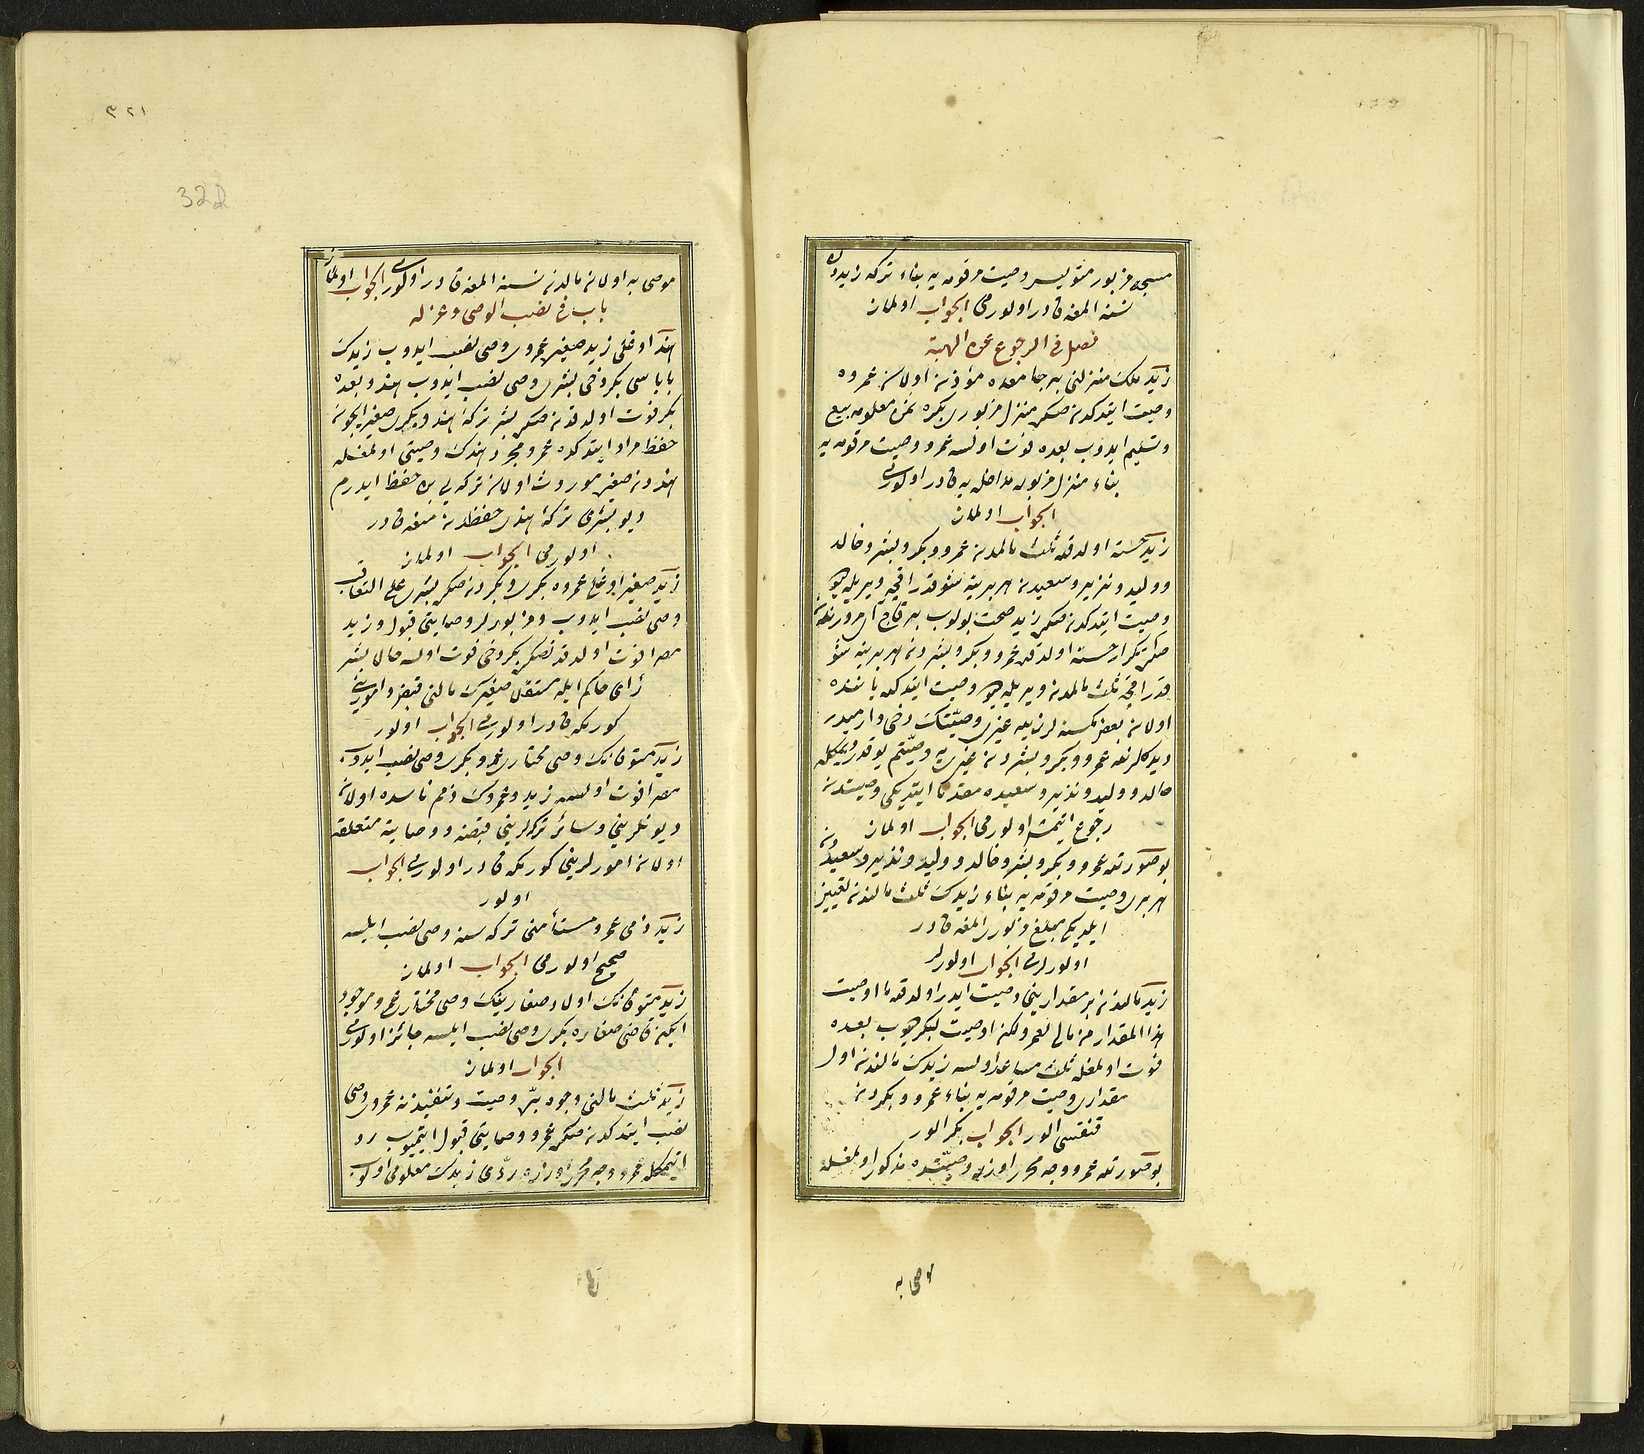 مسجد مزبور متوليسى وصيت مرقومه يه بناء تركه زيددن
نسنه المغه قادر اولورمى الجواب اولماز
فصل فى الرجوع عن الهبة
زيد ملك منزلنى بر جامعده مؤذن اولان عمروه
وصيت ايتدكدنصكره منزل مزبورى بكره ثمن معلومه بيع
وتسليم ايدوب بعده فوت اولسه عمرو وصيت مرقومه يه
بناء منزل مزبوره مداخله يه قادر اولورمى
الجواب اولماز
زيد خسته اولدقده ثلث مالندن عمرو وبكر وبشر وخالد
ووليد ونذير وسعيدن هر برينه شوقدر اقچه ويريله ديو
وصيت ايتدكدنصكره زيد صحت بولوب بر قاچ آى مرورنده
صكره تكرار خسته اولدقده عمرو وبكر وبشردن هر برينه شو
قدر اقچه ثلث مالمدن ويريله ديو وصيت ايتدكده ياننده
اولان بعض كمسنه لر زيده غيرى وصيتك دخى وارميدر
ديدكلرنده عمرو وبكر وبشردن غيرى يه وصيتم يوقدر ديمكله
خالد ووليد ونذير وسعيده مقدما ايتديكى وصيتدن
رجوع ايتمش اولورمى الجواب اولماز
بو صورتده عمرو وبكر وبشر وخالد ووليد ونذير وسعيددن
هر برى وصيت مرقومه يه بناء زيدك ثلث مالندن تعيين
ايلديكى مبلغ مزبورى المغه قادر
اولورلرمى الجواب اولورلر
زيد مالندن بر مقدارينى وصيت ايدر اولدقده اوصيت
هذا المقدار من مالى لعمرو لكن اوصيت لبكر ديوب بعده
فوت اولمغله ثلث مساعد اولسه زيدك مالندن اول
مقدارى وصيت مرقومه يه بناء عمرو وبكردن
قنقسى الور الجواب بكر الور
بو صورتده عمرو وجه محرر اوزره وصيتنده مذكور اولمغله
موصى به
موصى به اولان مالدن نسنه المغه قادر اولورمى الجواب اولماز
باب فى نصب الوصى وعزله
هند اوغلى زيد صغيره عمروى وصى نصب ايدوب زيدك
باباسى بكر دخى بشرى وصى نصب ايدوب هند وبعده
بكر فوت اولدقدنصكره بشر تركه هند وبكرى صغير ايچون
حفظ مراد ايتدكده عمرو مجرد هندك وصيتى اولمغله
هنددن صغيره موروث اولان تركه يى بن حفظ ايدرم
ديو بشرى تركه هندى حفظدن منعه قادر
اولورمى الجواب اولماز
زيد صغير اوغلى عمروه بكرى وبكردنصكره بشرى على التعاقب
وصى نصب ايدوب ومزبورلر وصايتى قبول وزيد
مصرا فوت اولدقدنصكره بكر دخى فوت اولسه حالا بشر
رأى حاكم ايله مستقلا صغيرك مالنى قبض وامورينى
كورمكه قادر اولورمى الجواب اولور
زيد متوفانك وصى مختارى عمرو بكرى وصى نصب ايدوب
مصرا فوت اولسه زيد وعمروك ذمم ناسده اولان
ديونلرينى وسائر تركه لرينى قبضه ووصايته متعلقه
اولان امورلرينى كورمكه قادر اولورمى الجواب
اولور
زيد ذمى عمرو مستأمنى تركه سنه وصى نصب ايلسه
صحيح اولورمى الجواب اولماز
زيد متوفانك اولاد صغارينك وصى مختارى عمرو موجود
ايكن قاضى صغاره بكرى وصى نصب ايلسه جائز اولورمى
الجواب اولماز
زيد ثلث مالنى وجوه بره وصيت وتنفيذنه عمروى وصى
نصب ايتدكدنصكره عمرو وصايتى قبول ايتميوب رد
ايتمكله عمرو وجه محرر اوزره ردى زيدك معلومى اولوب
٣٢١
322